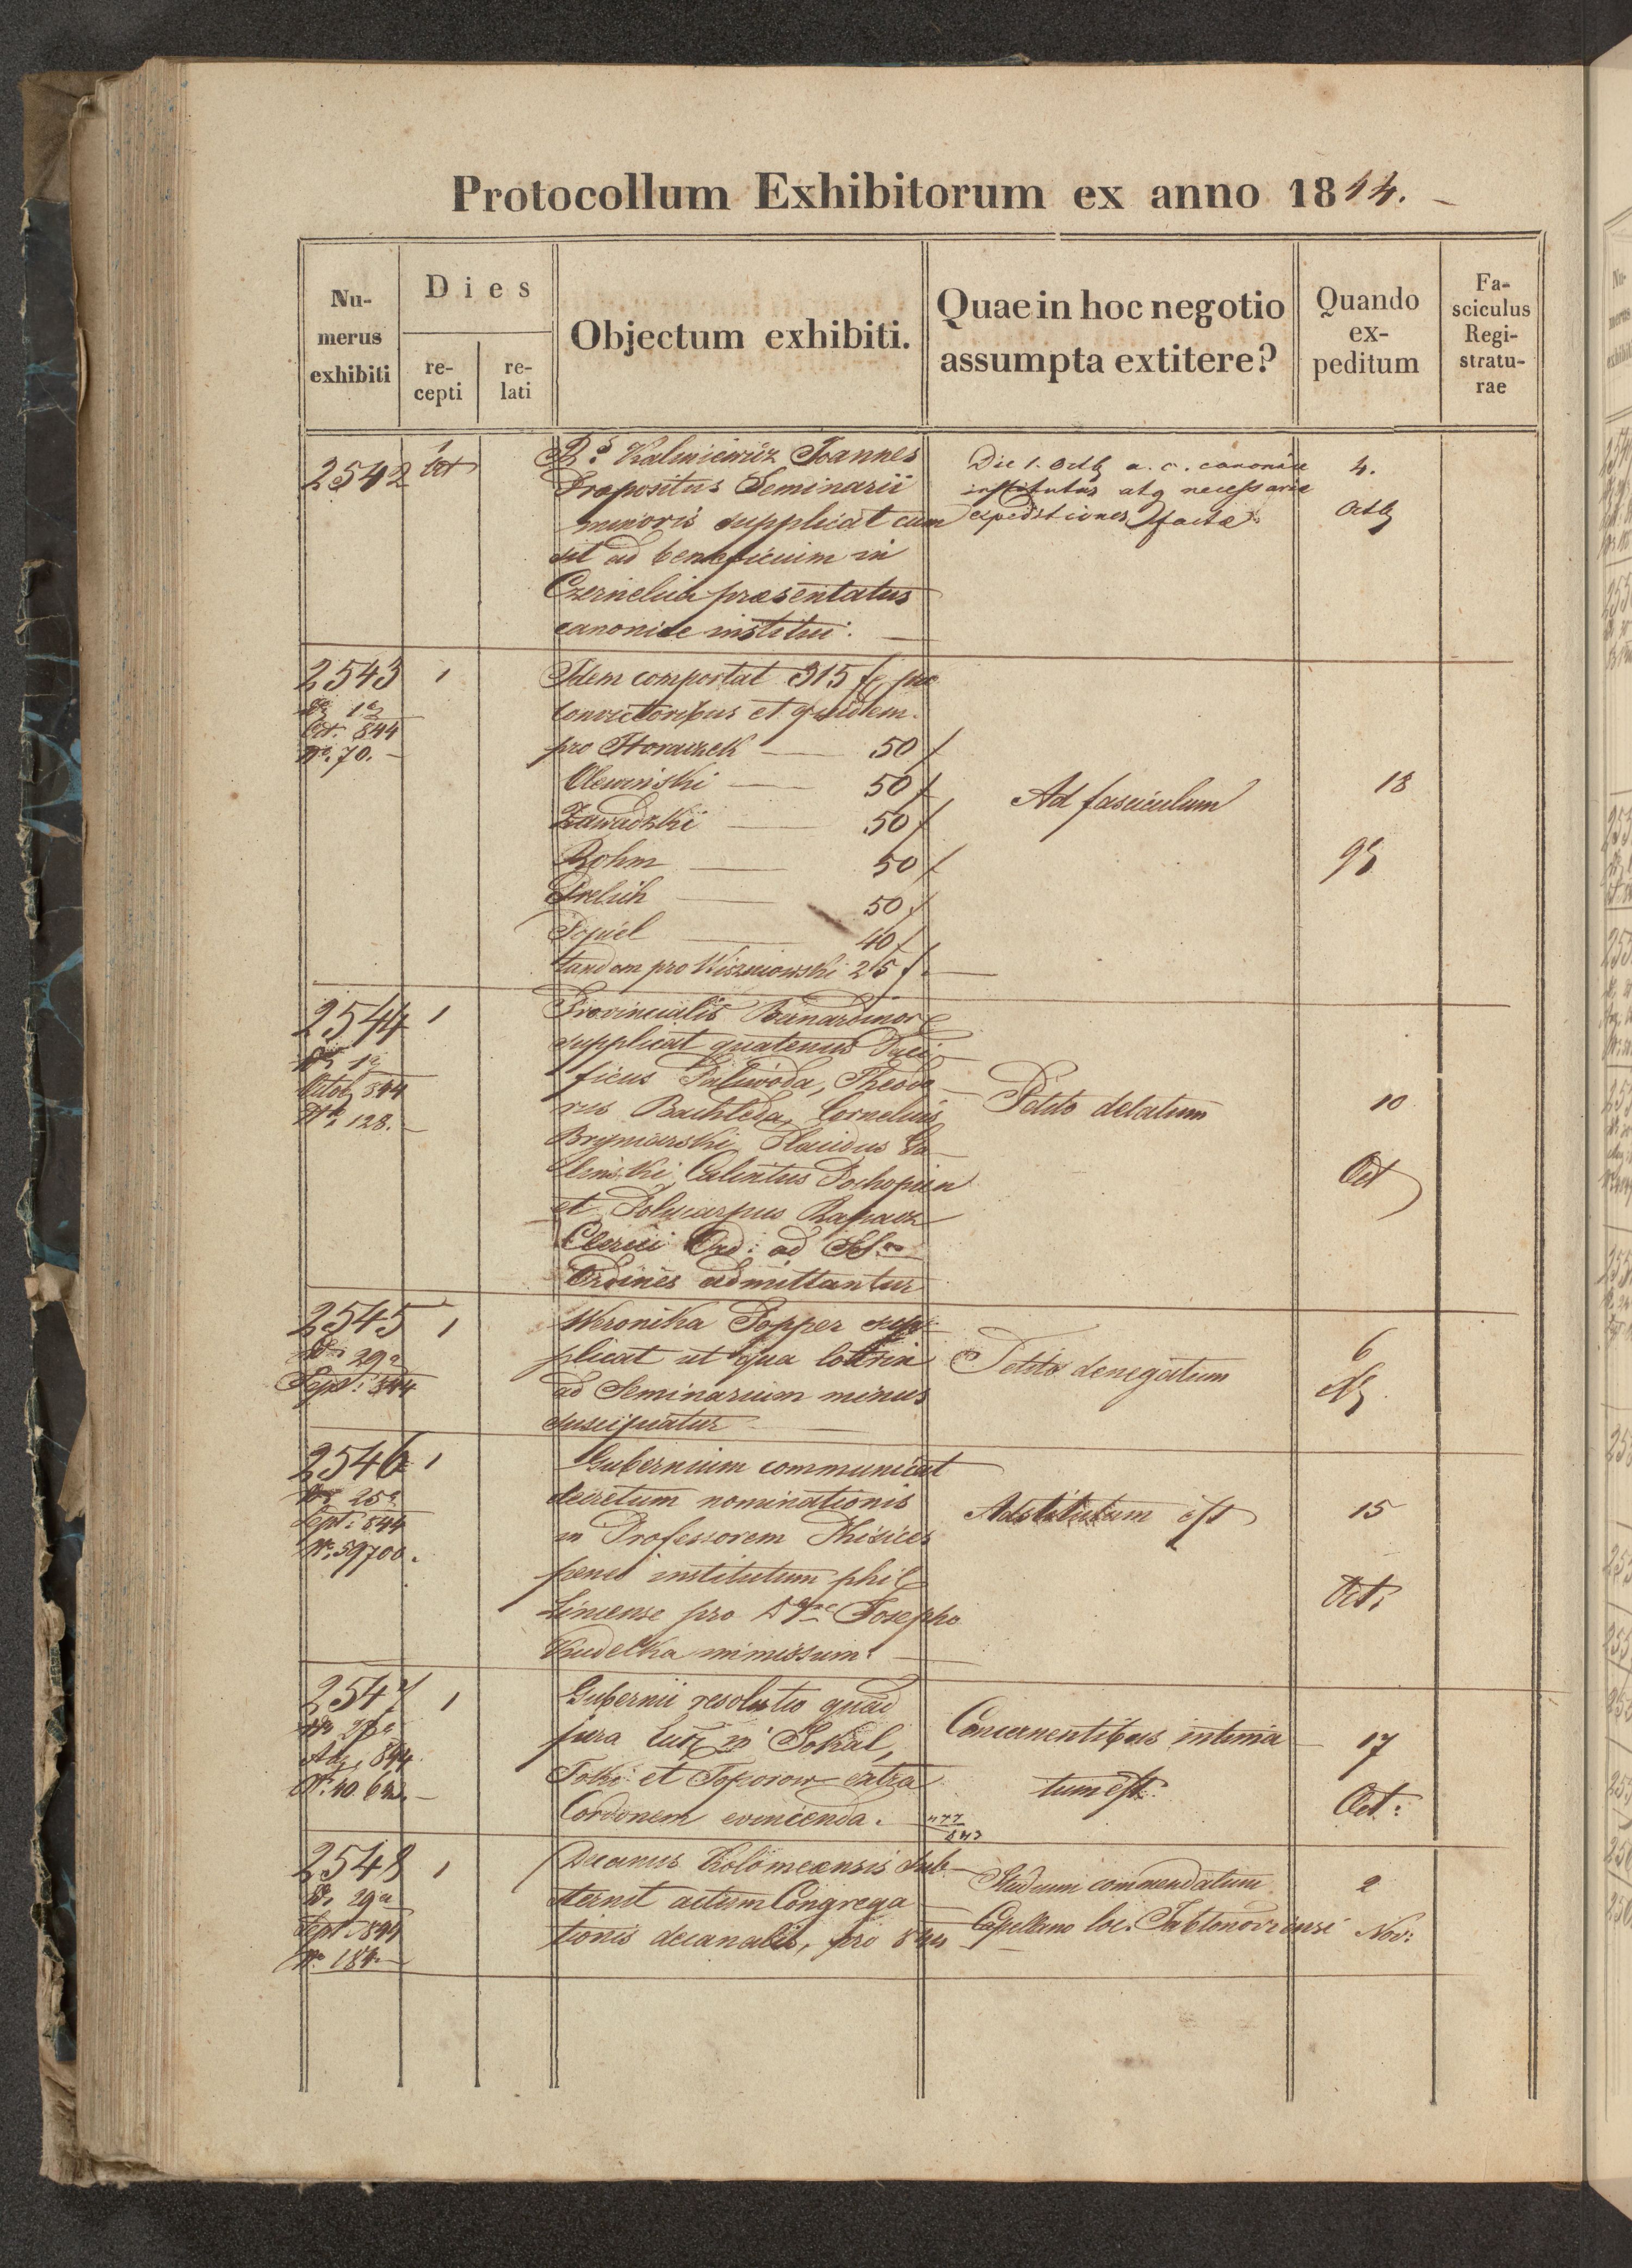 Protocollum Exhibitorum ex anno 1844.
Nu-
merus
exhibiti
Dies
re-
cepti
re-
lati
Objectum exhibiti.
Quae in hoc negotio
assumpta extitere?
Quando
ex-
peditum
Fa-
sciculus
Regi-
stratu-
rae
2542
1
Oct
Joannes
Prepositus Seminarii
minoris supplicat cum
sit ad beneficium in
praesentatus
canonice institui.
Die 1. Octb a. c. canonice
institutus atq necessariae
expeditiones factae
4.
Octb
2543
1
Oct. 844
No. 70.
Idem comportat 315 f. pro
convictoribus et quidem.
pro Horaczek 50 f
Olewinski 50 f
Zawadzki 50 f
Bohm 50 f
50 f
Popiel 40 f
tandem pro Wiszniowski 25 f.
Ad fasciculum
18
2544
1
Octob 844
No. 128.
Provincialis Bernardinor
supplicat quatenus Paci-
ficus Theodo-
rus Bachleda, Cornelius
Brymarski, Placidus Ga-
Pochopien
et Policarpus Rapacz
Clerici Ord: ad
Ordines admittantur
Petito delatum
10
Oct
2545
1
29a
Sept: 844
Weronika Popper sup-
plicat ut qua lotrix
ad Seminarium minus
suscipiatur
Petito denegatum
6
2546
1
25a
Sept: 844
No. 59700.
Gubernium communicat
decretum nominationis
in Professorem Phisices
penes institutum phil
pro Josepho
Kudelka
est
15
Oct:
2547
1
844
Gubernii resolutio quoad
jura in Sokal,
Toki et Toporow extra
Cordonem evincenda.
Concernentibus intima-
tum est.
17
Oct:
2548
1
29a
Sept 844
No. 184.
Decanus Kolomeensis sub-
sternit actum Congrega-
tionis decanalis, pro 844
Studium commendatum
Capellano loc. Jablonoviensi
2
Nov: